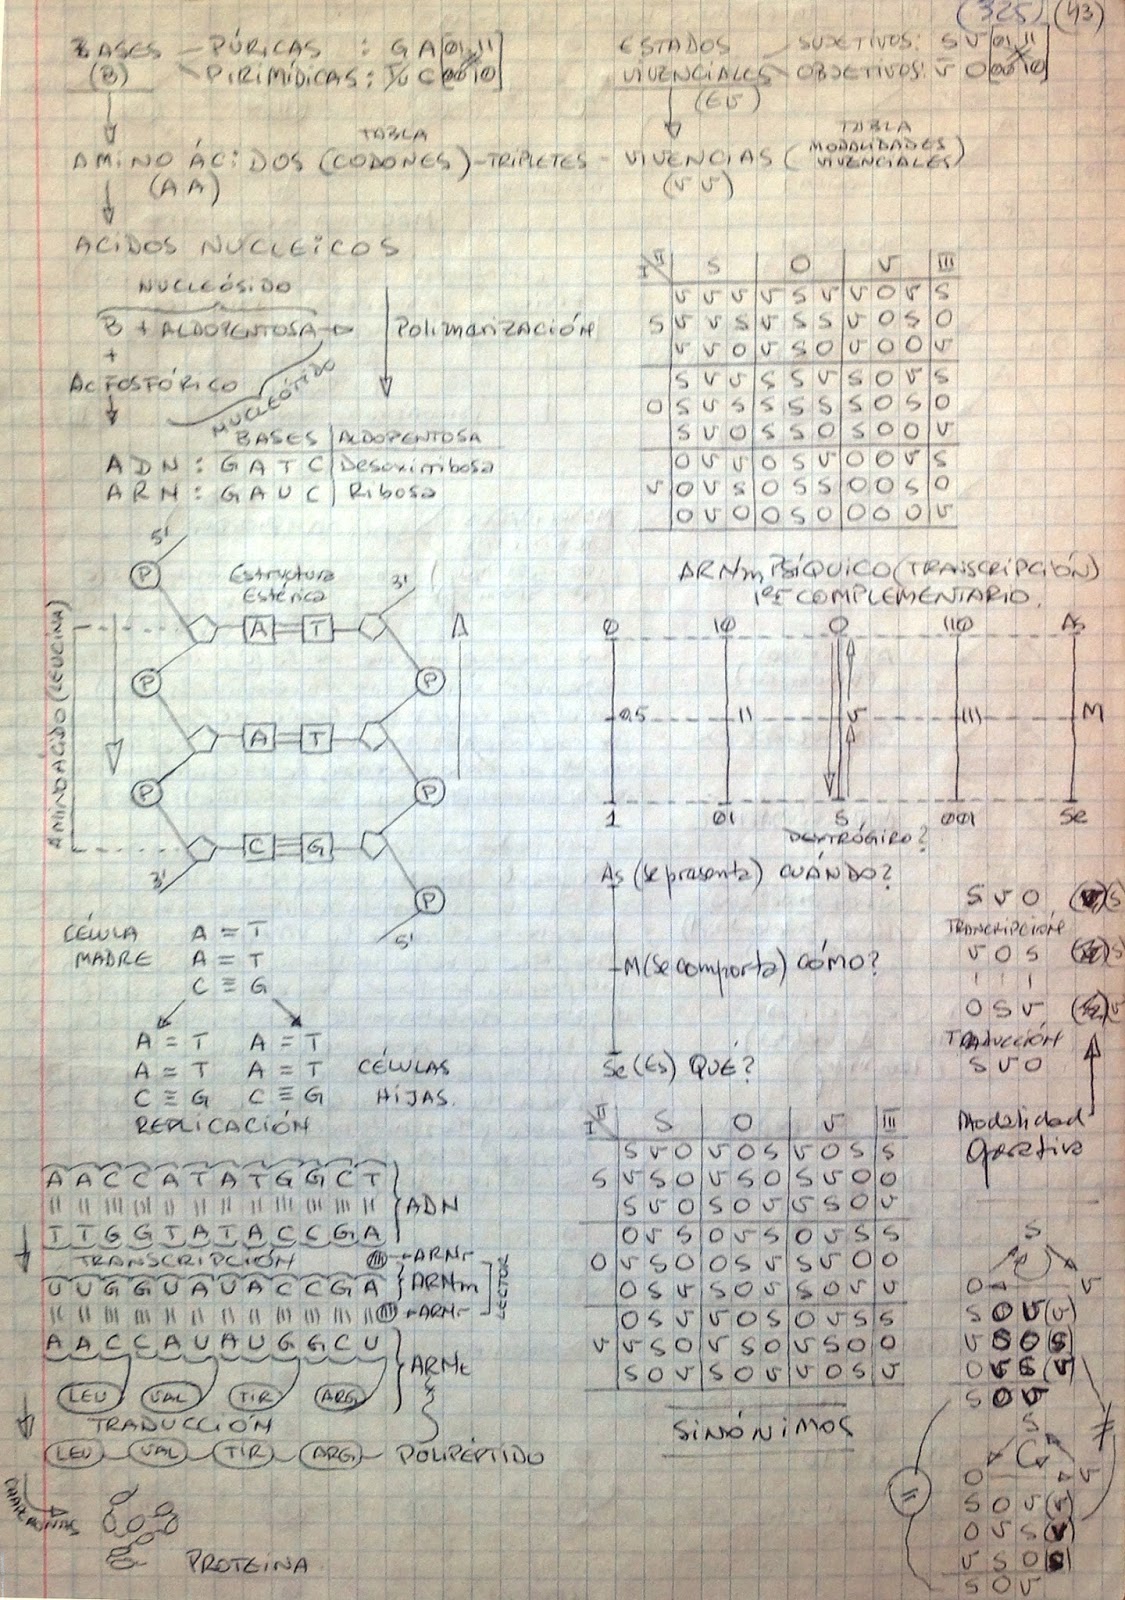 (325) (43)
BASES — PÚRICAS : G A 01 11
(B) PIRIMÍDICAS : T/U C 00 10
AMINO ÁCIDOS (CODONES) - TRIPLETES -
TABLA
(AA)
ACIDOS NUCLEICOS
NUCLEÓSIDO
B + ALDOPENTOSA
+
AC FOSFÓRICO
NUCLEÓTIDO
Polimerización
BASES | ALDOPENTOSA
ADN : G A T C | Desoxirribosa
ARN : G A U C | Ribosa
5'
P
Estructura
Estérica
3'
A T
P P
A T
P P
C G
3'
P
5'
AMINOÁCIDO (LEUCINA)
CÉLULA A = T
MADRE A = T
C ≡ G
A = T A = T
A = T A = T CÉLULAS
C ≡ G C ≡ G HIJAS.
REPLICACIÓN
A A C C A T A T G G C T
ADN
T T G G T A T A C C G A
TRANSCRIPCIÓN ARNr
U U G G U A U A C C G A ARNm
LECTOR
ARNr
A A C C A U A U G G C U
ARNt
LEU VAL TIR ARG
TRADUCCIÓN
LEU VAL TIR ARG - POLIPÉPTIDO
CHAPERONAS
PROTEINA
ESTADOS — SUJETIVOS: S V 01 11
VIVENCIALES OBJETIVOS: V O 00 10
(EV)
TABLA
VIVENCIAS (MODALIDADES
VIVENCIALES)
(VV)
I II S O V III
V V V V S V V O V S
S V V S V S S V O S O
V V O V S O V O O V
S V V S S V S O V S
O S V S S S S S O S O
S V O S S O S O O V
O V V O S V O O V S
V O V S O S S O O S O
O V O O S O O O O V
ARNm PSÍQUICO (TRANSCRIPCIÓN)
1er COMPLEMENTARIO.
0 10 O 110 As
0.5 11 V 111 M
1 01 S 001 Se
DEXTRÓGIRO?
As (se presenta) CUÁNDO?
M (Se comporta) CÓMO?
Se (Es) QUÉ?
S V O
TRANCRIPCIÓN
V O S
O S V
TRADUCCIÓN
S V O
Modalidad
Operativa
I II S O V III
S V O V O S V O S S
S V S O S O S V O O
S V O S O V V S O V
O V S O V S O V S S
O V S O O S V S V O O
O S V S O V S O V V
O S V V O S O V S S
V V S O V S O V S O O
S O V S O V V O S V
SINÓNIMOS
S
O V
S O V (V)
V S O S
O V S (V)
S O V
S
O V
S O V (V)
O V S (V)
V S O S
S O V